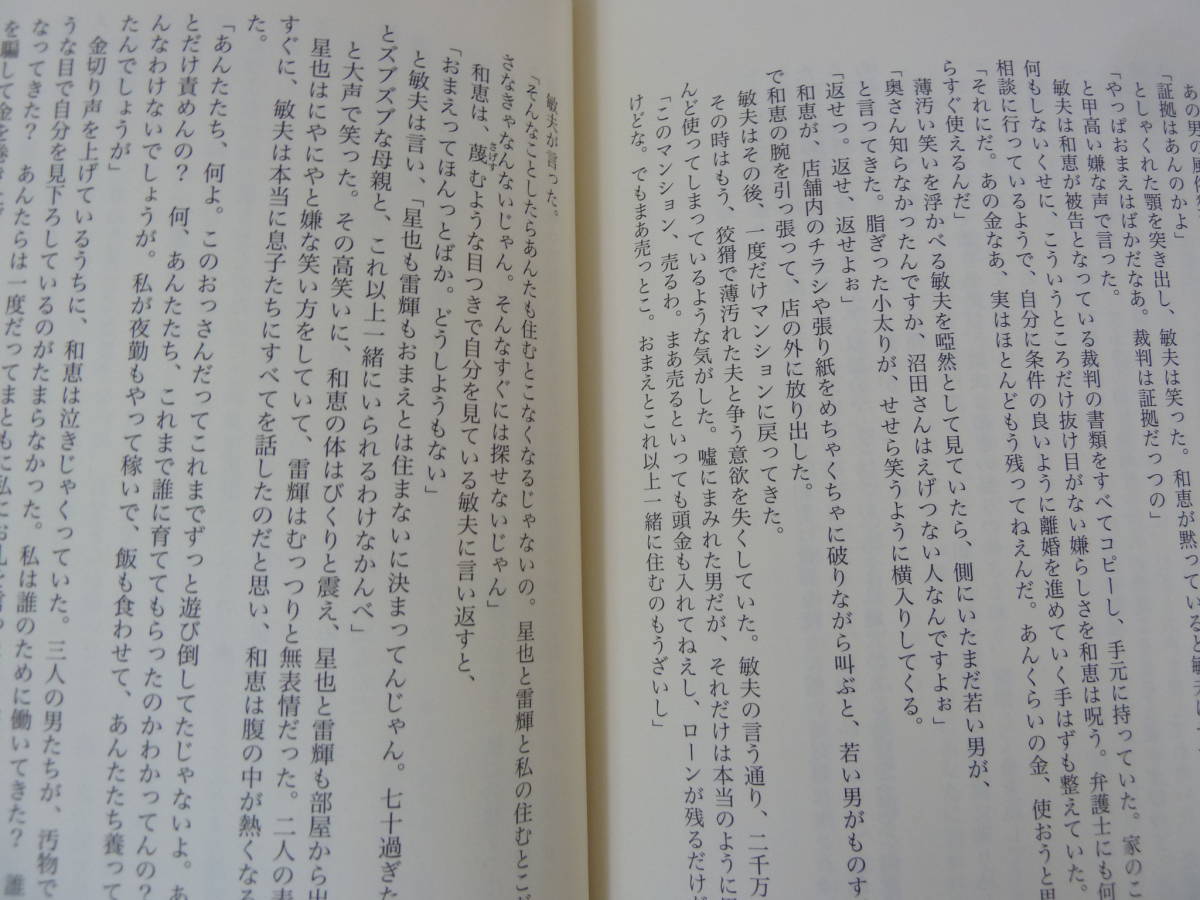 あの男の
「証拠はあんのかよ」
としゃくれた顎を突き出し、敏夫は笑った。和恵が黙っていると敏夫は、
「やっぱおまえはばかだなあ。裁判は証拠だっつの」
と甲高い嫌な声で言った。
敏夫は和恵が被告となっている裁判の書類をすべてコピーし、手元に持っていた。家のこ
何もしないくせに、こういうところだけ抜け目がない嫌らしさを和恵は呪う。弁護士にも何
相談に行っているようで、自分に条件の良いように離婚を進めていく手はずも整えていた。
「それにだ。あの金なあ、実はほとんどもう残ってねえんだ。あんくらいの金、使おうと思
らすぐ使えるんだ」
薄汚い笑いを浮かべる敏夫を啞然として見ていたら、側にいたまだ若い男が、
「奥さん知らなかったんですか、沼田さんはえげつない人なんですよぉ」
と言ってきた。脂ぎった小太りが、せせら笑うように横入りしてくる。
「返せっ。返せ、返せよぉ」
和恵が、店舗内のチラシや張り紙をめちゃくちゃに破りながら叫ぶと、若い男がものす
で和恵の腕を引っ張って、店の外に放り出した。
敏夫はその後、一度だけマンションに戻ってきた。
その時はもう、狡猾で薄汚れた夫と争う意欲を失くしていた。敏夫の言う通り、二千万
んど使ってしまっているような気がした。嘘にまみれた男だが、それだけは本当のように
「このマンション、売るわ。まあ売るといっても頭金も入れてねえし、ローンが残るだけだ
けどな。でもまあ売っとこ。おまえとこれ以上一緒に住むのもうざいし」
敏夫が言った。
「そんなことしたらあんたも住むとこなくなるじゃないの。星也と雷輝と私の住むとこ
さなきゃなんないじゃん。そんなすぐには探せないじゃん」
和恵は、蔑むような目つきで自分を見ている敏夫に言い返すと、
「おまえってほんっとばか。どうしようもない」
と敏夫は言い、「星也も雷輝もおまえとは住まないに決まってんじゃん。七十過ぎた
とズブズブな母親と、これ以上一緒にいられるわけなかんべ」
と大声で笑った。その高笑いに、和恵の体はびくりと震え、星也と雷輝も部屋から出
星也はにやにやと嫌な笑い方をしていて、雷輝はむっつりと無表情だった。二人の表
すぐに、敏夫は本当に息子たちにすべてを話したのだと思い、和恵は腹の中が熱くなる
た。
「あんたたち、何よ。このおっさんだってこれまでずっと遊び倒してたじゃないよ。あ
とだけ責めんの？　何、あんたたち、これまで誰に育ててもらったのかわかってんの？
んなわけないでしょうが。私が夜勤もやって稼いで、飯も食わせて、あんたたち養って
たんでしょうが」
金切り声を上げているうちに、和恵は泣きじゃくっていた。三人の男たちが、汚物で
うな目で自分を見下ろしているのがたまらなかった。私は誰のために働いてきた？　誰
なってきた？　あんたらは一度だってまともに私にお礼を言っ
を騙して金を巻き上げ